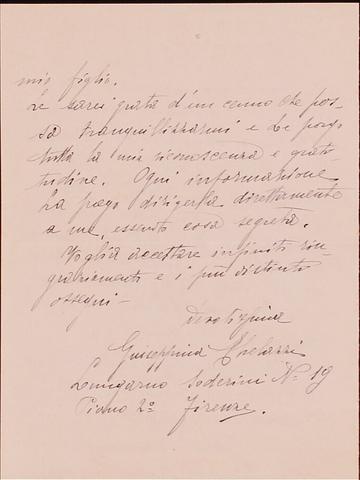 mio figlio.
Le sarei grata d'un cenno che pos-
sa tranquillizzarmi e Le porgo
tutta la mia riconoscenza e grati-
tudine. Ogni informazione
La prego dirigerla direttamente
a me, essendo cosa segreta.
Voglia accettare infiniti rin-
graziamenti e i più distinti
ossequi -
Devotissima
Giuseppina
Lungarno Soderini N° 19
Piano 2° Firenze.